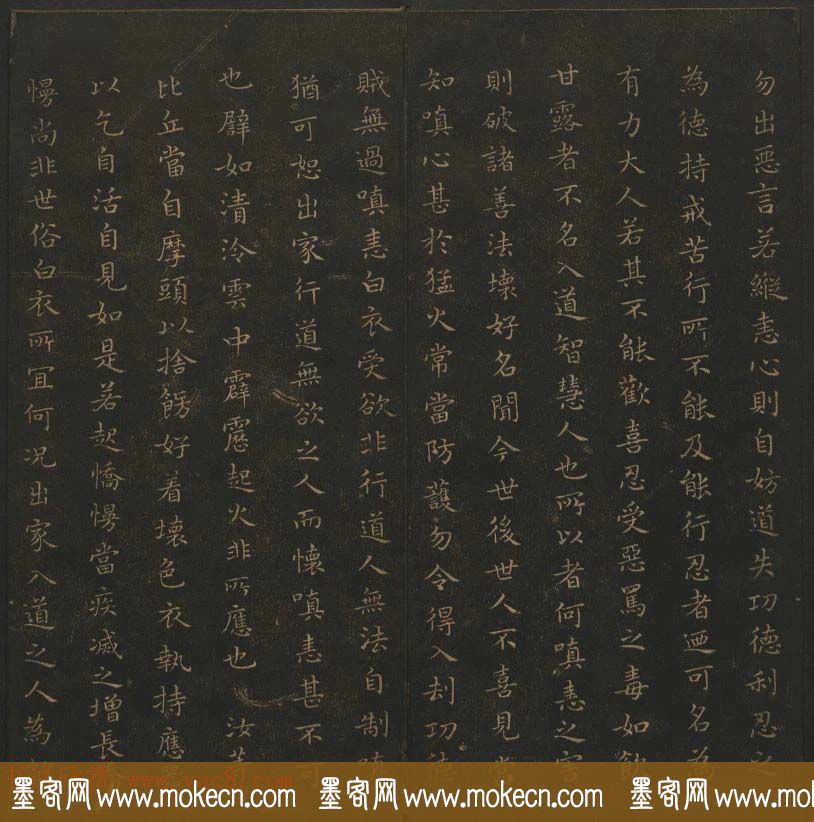 勿出惡言若縱恚心則自妨道失功德利忍之
為德持戒苦行所不能及能行忍者迺可名為
有力大人若其不能歡喜忍受惡罵之毒如飲
甘露者不名入道智慧人也所以者何嗔恚之害
則破諸善法壞好名聞今世後世人不喜見當
知嗔心甚於猛火常當防護勿令得入刦功德
賊無過嗔恚白衣受欲非行道人無法自制嗔
猶可恕出家行道無欲之人而懷嗔恚甚不可
也譬如清泠雲中霹靂起火非所應也 汝等
比丘當自摩頭以捨餝好着壞色衣執持應
以乞自活自見如是若起憍慢當疾滅之增長
慢尚非世俗白衣所宜何況出家入道之人為
墨客网 www.mokecn.com 墨客网 www.mokecn.com 墨客网 www.mokecn.com